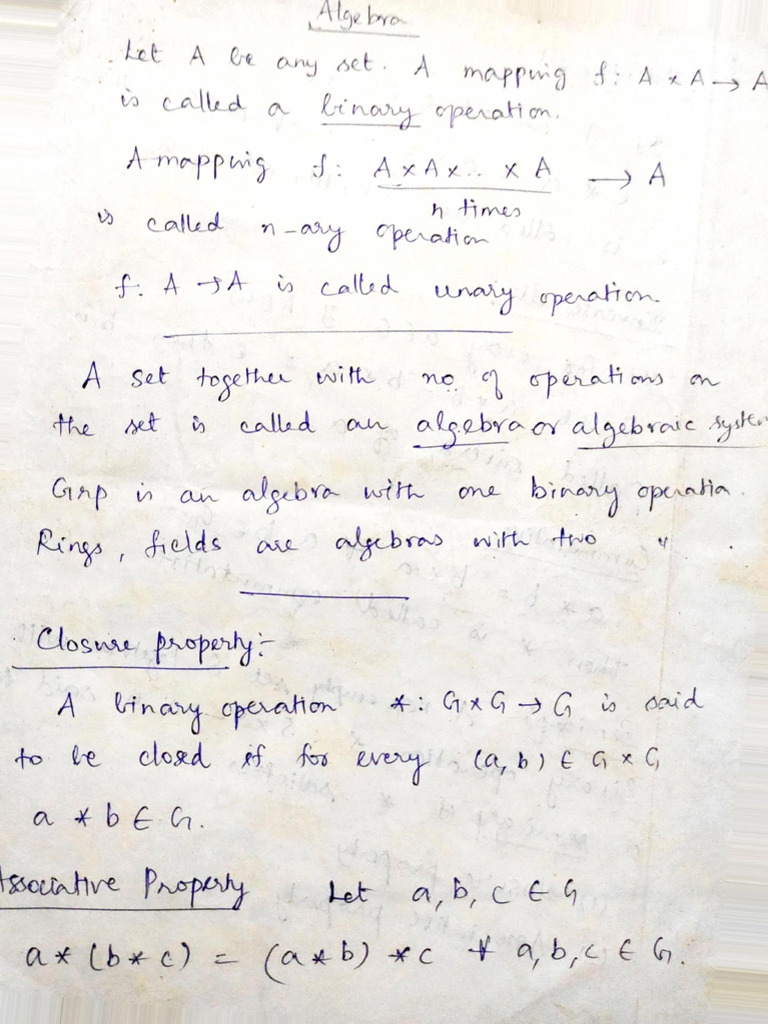 Algebra
Let A be any set. A mapping f: A × A → A
is called a binary operation.
A mapping f: A × A × .. × A → A
n times
is called n-ary operation
f: A → A is called unary operation.
A set together with no. of operations on
the set is called an algebra or algebraic system
Grp is an algebra with one binary operation.
Rings, fields are algebras with two " .
Closure property:-
A binary operation *: G × G → G is said
to be closed if for every (a, b) ∈ G × G
a * b ∈ G.
Associative Property Let a, b, c ∈ G
a * (b * c) = (a * b) * c ∀ a, b, c ∈ G.